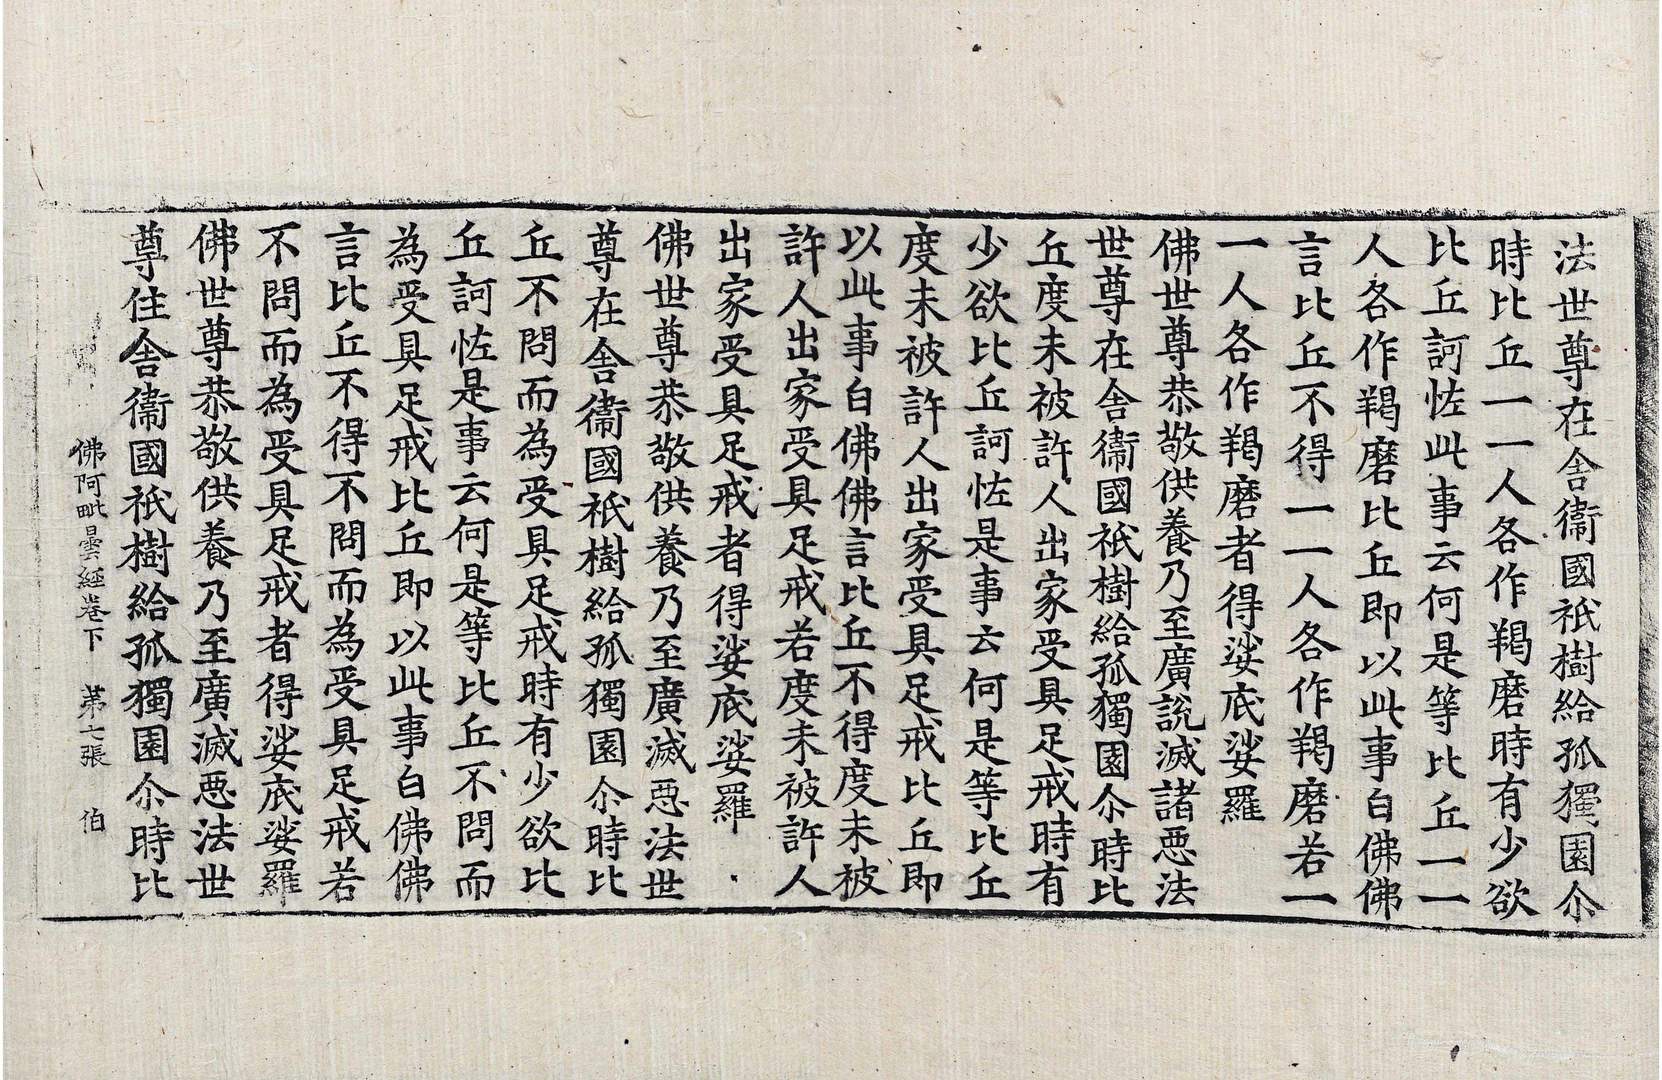 法世尊在舎衞國祇樹給孤獨園尒
時比丘一一人各作羯磨時有少欲
比丘訶恠此事云何是等比丘一一
人各作羯磨比丘即以此事白佛佛
言比丘不得一一人各作羯磨若一
一人各作羯磨者得娑底娑羅
佛世尊恭敬供養乃至廣說滅諸惡法
世尊在舎衞國祇樹給孤獨園尒時比
丘度未被許人出家受具足戒時有
少欲比丘訶恠是事云何是等比丘
度未被許人出家受具足戒比丘即
以此事白佛佛言比丘不得度未被
許人出家受具足戒若度未被許人
出家受具足戒者得娑底娑羅
佛世尊恭敬供養乃至廣滅惡法世
尊在舎衞國祇樹給孤獨園尒時比
丘不問而為受具足戒時有少欲比
丘訶恠是事云何是等比丘不問而
為受具足戒比丘即以此事白佛佛
言比丘不得不問而為受具足戒若
不問而為受具足戒者得娑底娑羅
佛世尊恭敬供養乃至廣滅惡法世
尊住舎衞國祇樹給孤獨園尒時比
佛阿毗曇經卷下 苐七張 伯